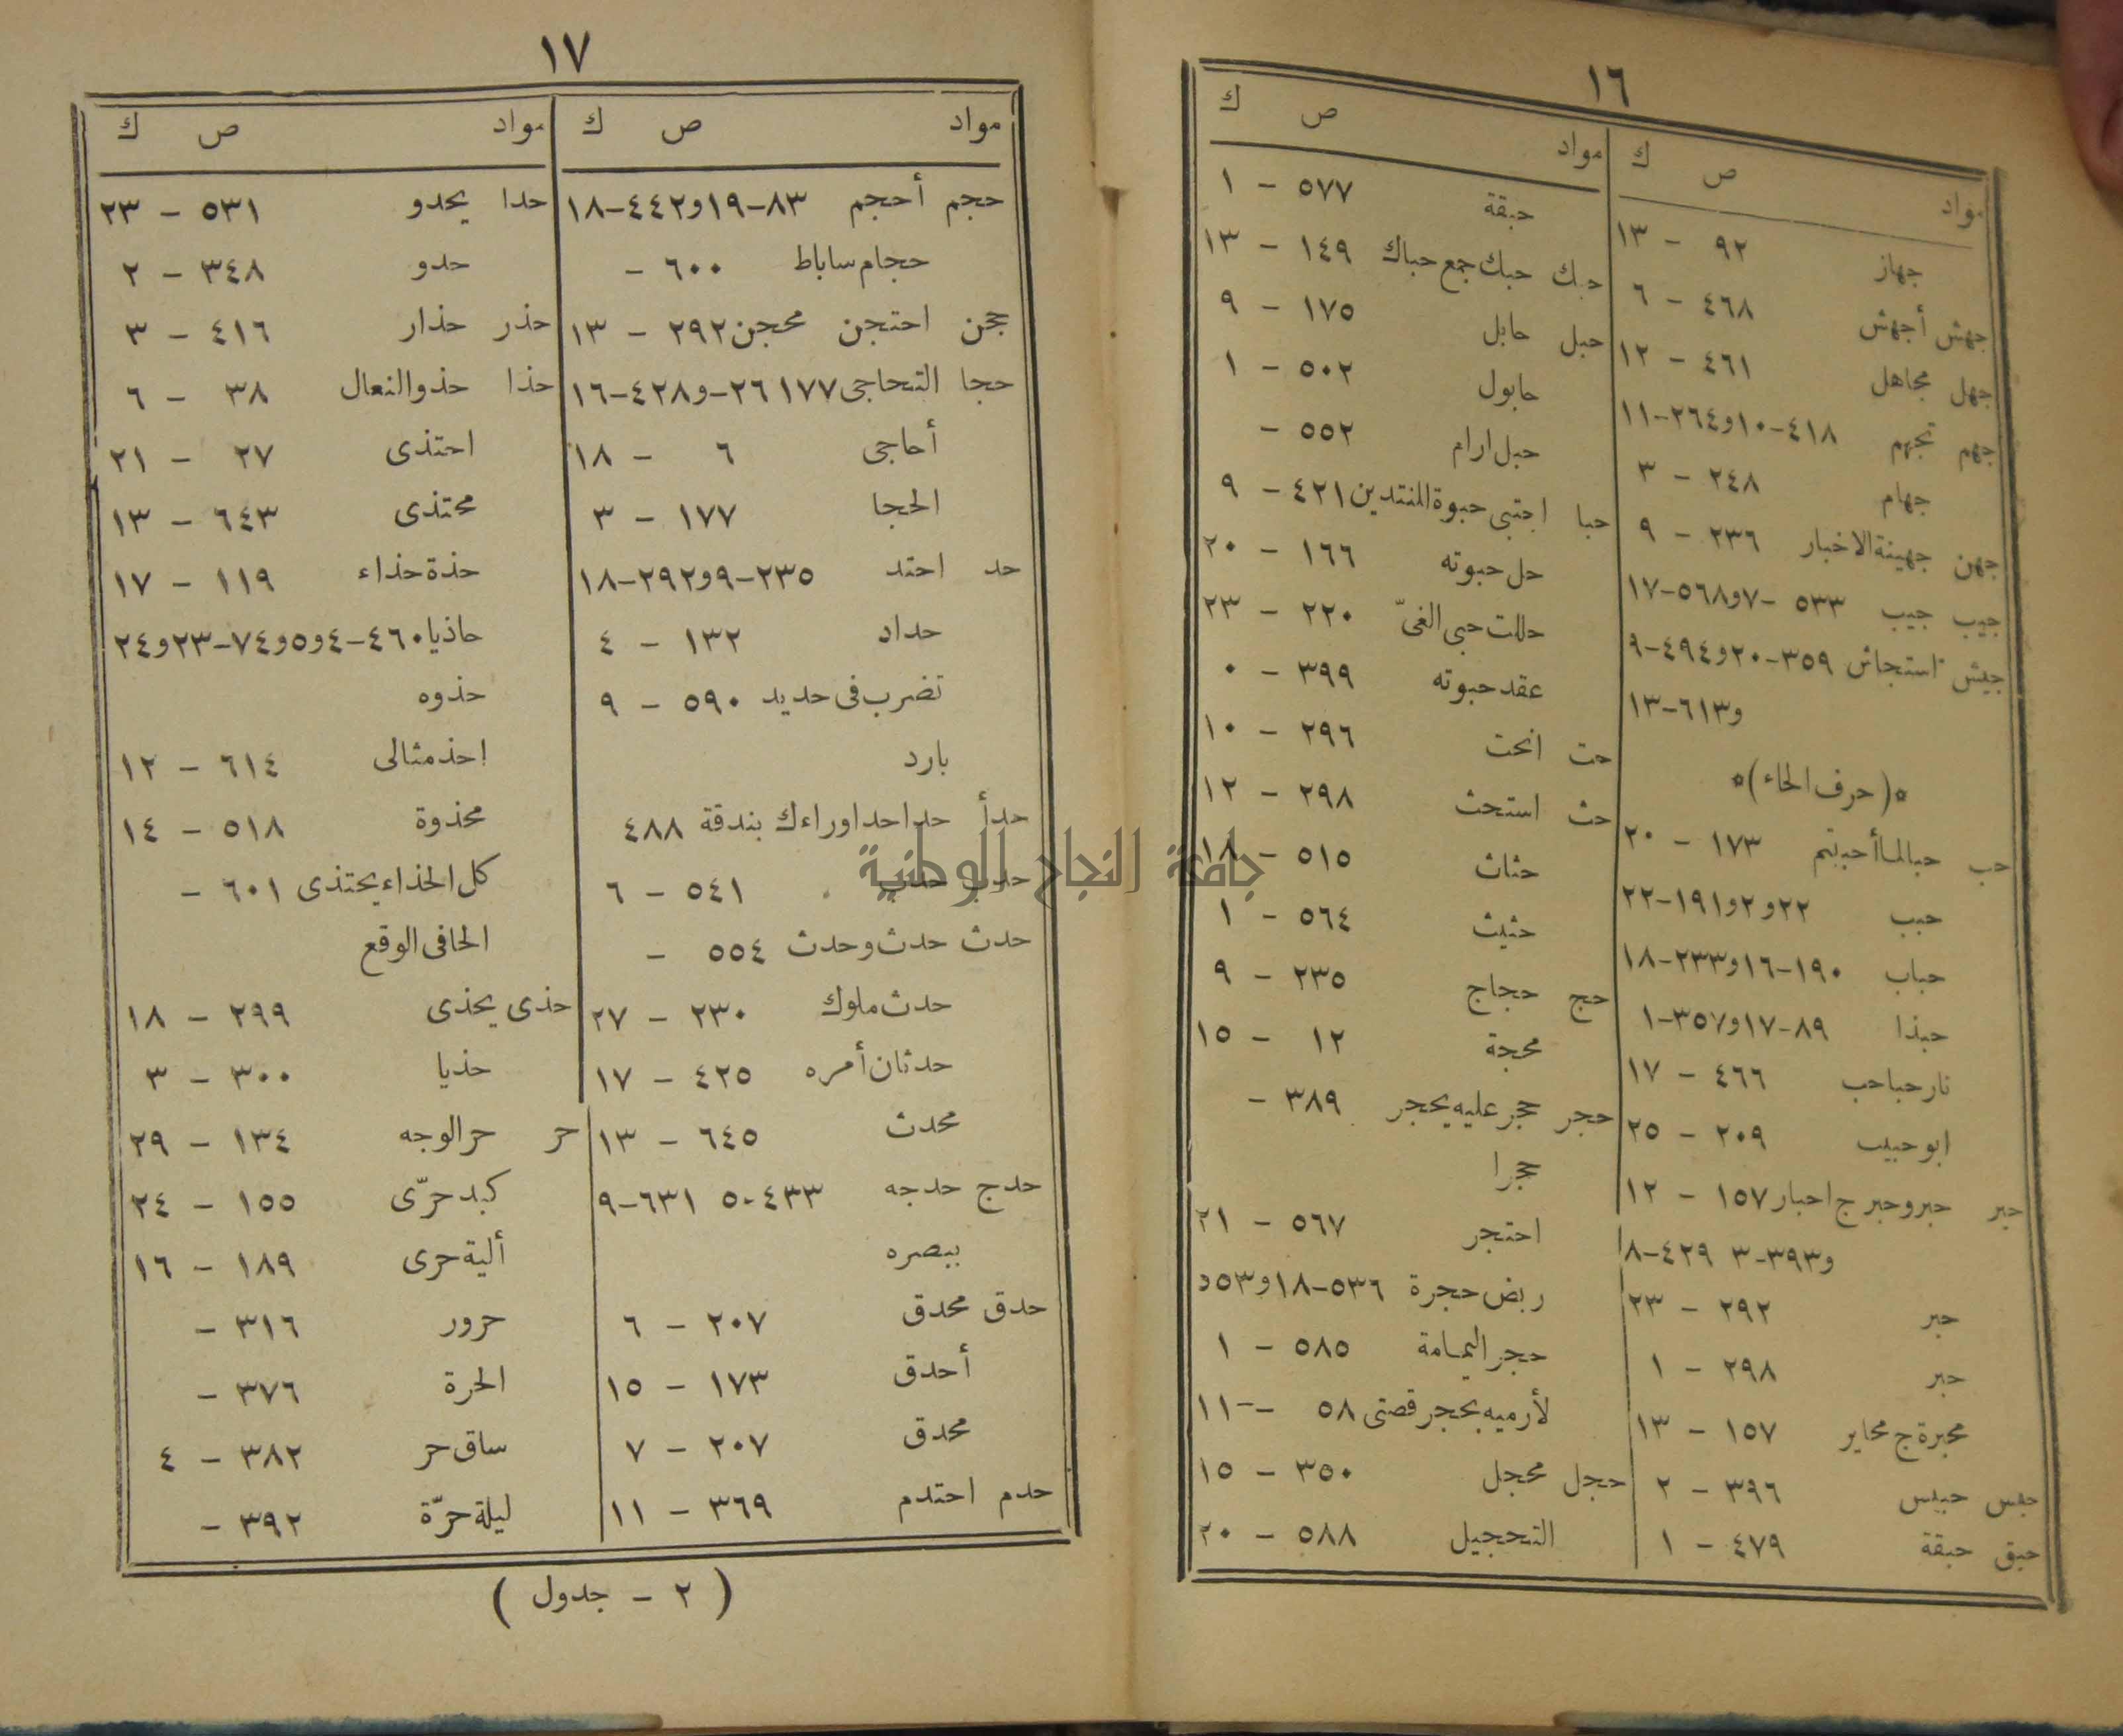 ١٦
مواد ص ك
جهاز ٩٢ - ١٣
جهش أجهش ٤٦٨ - ٦
جهل مجاهل ٤٦١ - ١٢
جهم تجهم ٤١٨-١٠و٢٦٤-١١
جهام ٢٤٨ - ٣
جهن جهينة الاخبار ٢٣٦ - ٩
جيب جيب ٥٣٣ -٧و٥٦٨-١٧
جيش استجاش ٣٥٩-٢٠و٤٩٤-٩
و٦١٣-١٣
*(حرف الحاء)*
حب حبالما أحببتم ١٧٣ - ٢٠
حبب ٢٢و٢و١٩١-٢٢
حباب ١٩٠-١٦و٢٣٣-١٨
حبذا ٨٩-١٧و٣٥٧-١
نار حباحب ٤٦٦ - ١٧
ابو حبيب ٢٠٩ - ٢٥
حبر حبر وحبر ج احبار ١٥٧ - ١٢
و٣٩٣-٣ ٤٢٩-٨
حبر ٢٩٢ - ٢٣
حبر ٢٩٨ - ١
محبرة ج محابر ١٥٧ - ١٣
حبس حبيس ٣٩٦ - ٢
حبق حبقة ٤٧٩ - ١
مواد ص ك
حبقة ٥٧٧ - ١
حبك حبك جمع حباك ١٤٩ - ١٣
حبل حابل ١٧٥ - ٩
حابول ٥٠٢ - ١
حبل ارام ٥٥٢ -
حبا احتبى حبوة المنتدين ٤٢١ - ٩
حل حبوته ١٦٦ - ٢٠
حللت حبى الغىّ ٢٢٠ - ٢٣
عقد حبوته ٣٩٩ - ٠
حت انحت ٢٩٦ - ١٠
حث استحث ٢٩٨ - ١٢
حثاث ٥١٥ - ١٨
حثيث ٥٦٤ - ١
حج حجاج ٢٣٥ - ٩
محجة ١٢ - ١٥
حجر حجر عليه يحجر ٣٨٩ -
حجرا
احتجر ٥٦٧ - ٢١
ربض حجرة ٥٣٦-١٨و٥٣
حجر اليمامة ٥٨٥ - ١
لأرميه بحجر قصتى ٥٨ -- ١١
حجل محجل ٣٥٠ - ١٥
التحجيل ٥٨٨ - ٢٠
١٧
مواد ص ك
حجم أحجم ٨٣-١٩و٤٤٢-١٨
حجام ساباط ٦٠٠ -
حجن احتجن محجن ٢٩٢ - ١٣
حجا التحاجى ١٧٧ ٢٦-و٤٢٨-١٦
أحاجى ٦ - ١٨
الحجا ١٧٧ - ٣
حد احتد ٢٣٥-٩و٢٩٢-١٨
حداد ١٣٢ - ٤
تضرب فى حديد ٥٩٠ - ٩
بارد
حدأ حداحدا وراءك بندقة ٤٨٨
حدب حدب ٥٤١ - ٦
حدث حدث وحدث ٥٥٤ -
حدث ملوك ٢٣٠ - ٢٧
حدثان أمره ٤٢٥ - ١٧
محدث ٦٤٥ - ١٣
حدج حدجه ٤٣٣-٥ ٦٣١-٩
ببصره
حدق محدق ٢٠٧ - ٦
أحدق ١٧٣ - ١٥
محدق ٢٠٧ - ٧
حدم احتدم ٣٦٩ - ١١
مواد ص ك
حدا يحدو ٥٣١ - ٢٣
حدو ٣٤٨ - ٢
حذر حذار ٤١٦ - ٣
حذا حذو النعال ٣٨ - ٦
احتذى ٢٧ - ٢١
محتذى ٦٤٣ - ١٣
حذة حذاء ١١٩ - ١٧
حاذيا ٤٦٠-٤و٥و٧٤-٢٣و٢٤
حذوه
احذ مثالى ٦١٤ - ١٢
محذوة ٥١٨ - ١٤
كل الحذاء يحتذى ٦٠١ -
الحافى الوقع
حذى يحذى ٢٩٩ - ١٨
حذيا ٣٠٠ - ٣
حر حر الوجه ١٣٤ - ٢٩
كبد حرّى ١٥٥ - ٢٤
ألية حرى ١٨٩ - ١٦
حرور ٣١٦ -
الحرة ٣٧٦ -
ساق حر ٣٨٢ - ٤
ليلة حرّة ٣٩٢ -
( ٢ - جدول )
جامعة النجاح الوطنية